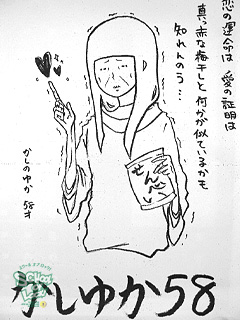 恋の運命は 愛の証明は
真っ赤な梅干しと何かが似ているかも
知れんのう…
かしのゆか 58才
せんべい
かしゆか58